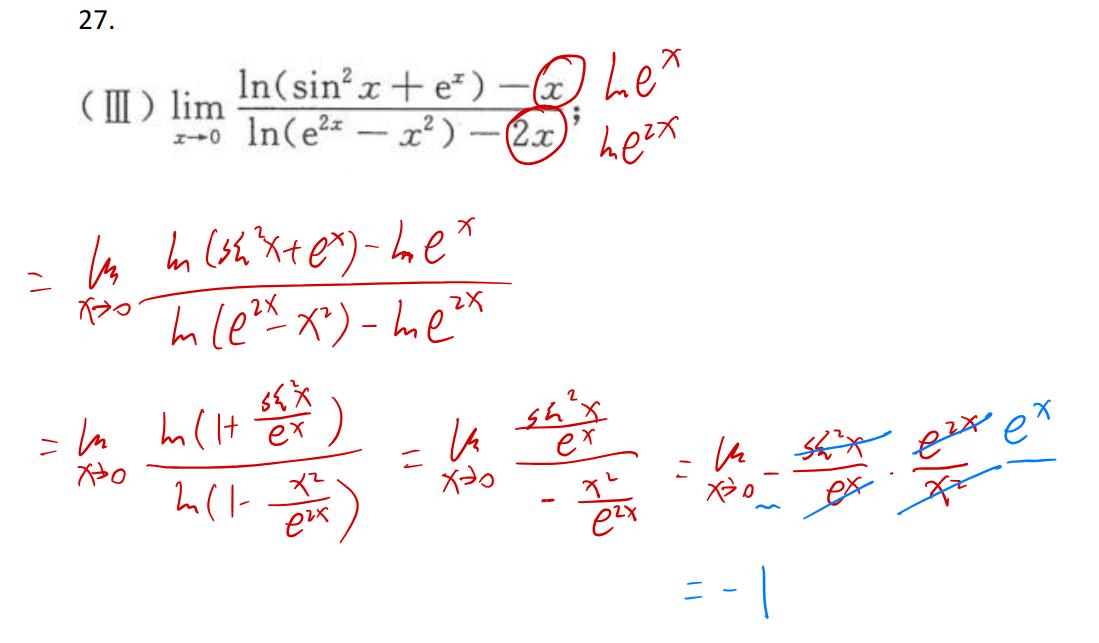 27.
(Ⅲ) lim_{x→0} \frac{ln(sin²x + eˣ) − x}{ln(e²ˣ − x²) − 2x}; ln eˣ ln e²ˣ
= lim_{x→0} \frac{ln(sin²x + eˣ) − ln eˣ}{ln(e²ˣ − x²) − ln e²ˣ}
= lim_{x→0} \frac{ln(1 + \frac{sin²x}{eˣ})}{ln(1 − \frac{x²}{e²ˣ})} = lim_{x→0} \frac{\frac{sin²x}{eˣ}}{−\frac{x²}{e²ˣ}} = lim_{x→0} − \frac{sin²x}{eˣ} · \frac{e²ˣ}{x²} eˣ
= −1